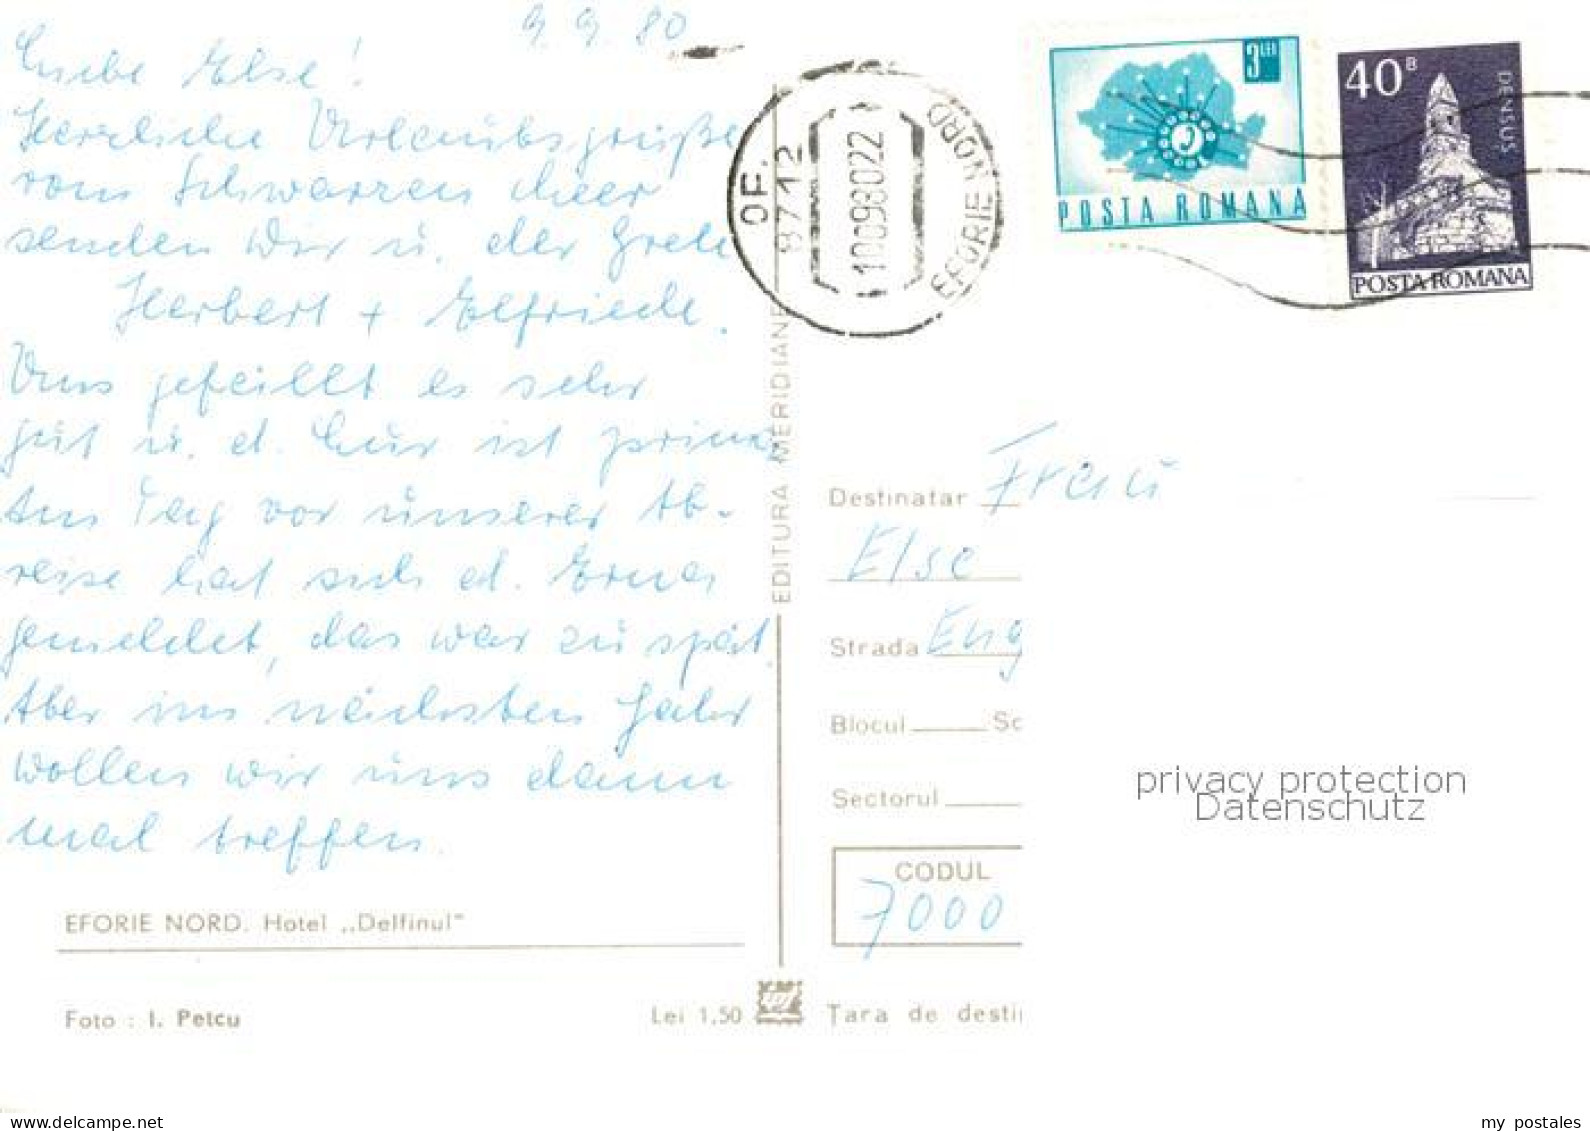 9.9.80
Liebe Else!
Herzliche Urlaubsgrüße
vom Schwarzen Meer
senden Wir u. der Grete
Herbert + Elfriede.
Uns gefällt es sehr
gut u. d. Kur ist prima
Am Tag vor unserer Ab-
reise hat sich d. Erna
gemeldet, das war zu spät.
Aber im nächsten Jahr
wollen wir uns dann
mal treffen.
EFORIE NORD. Hotel „Delfinul"
Foto : I. Petcu
Lei 1,50
EDITURA MERIDIANE
OF.
8712
100980022
EFORIE NORD
3 LEI
POSTA ROMANA
40 B
DENSUS
POSTA ROMANA
Destinatar Frau
Else
Strada Eng
Blocul Sc
Sectorul
CODUL
7000
Țara de desti
privacy protection
Datenschutz
my-postales.com
my_postales